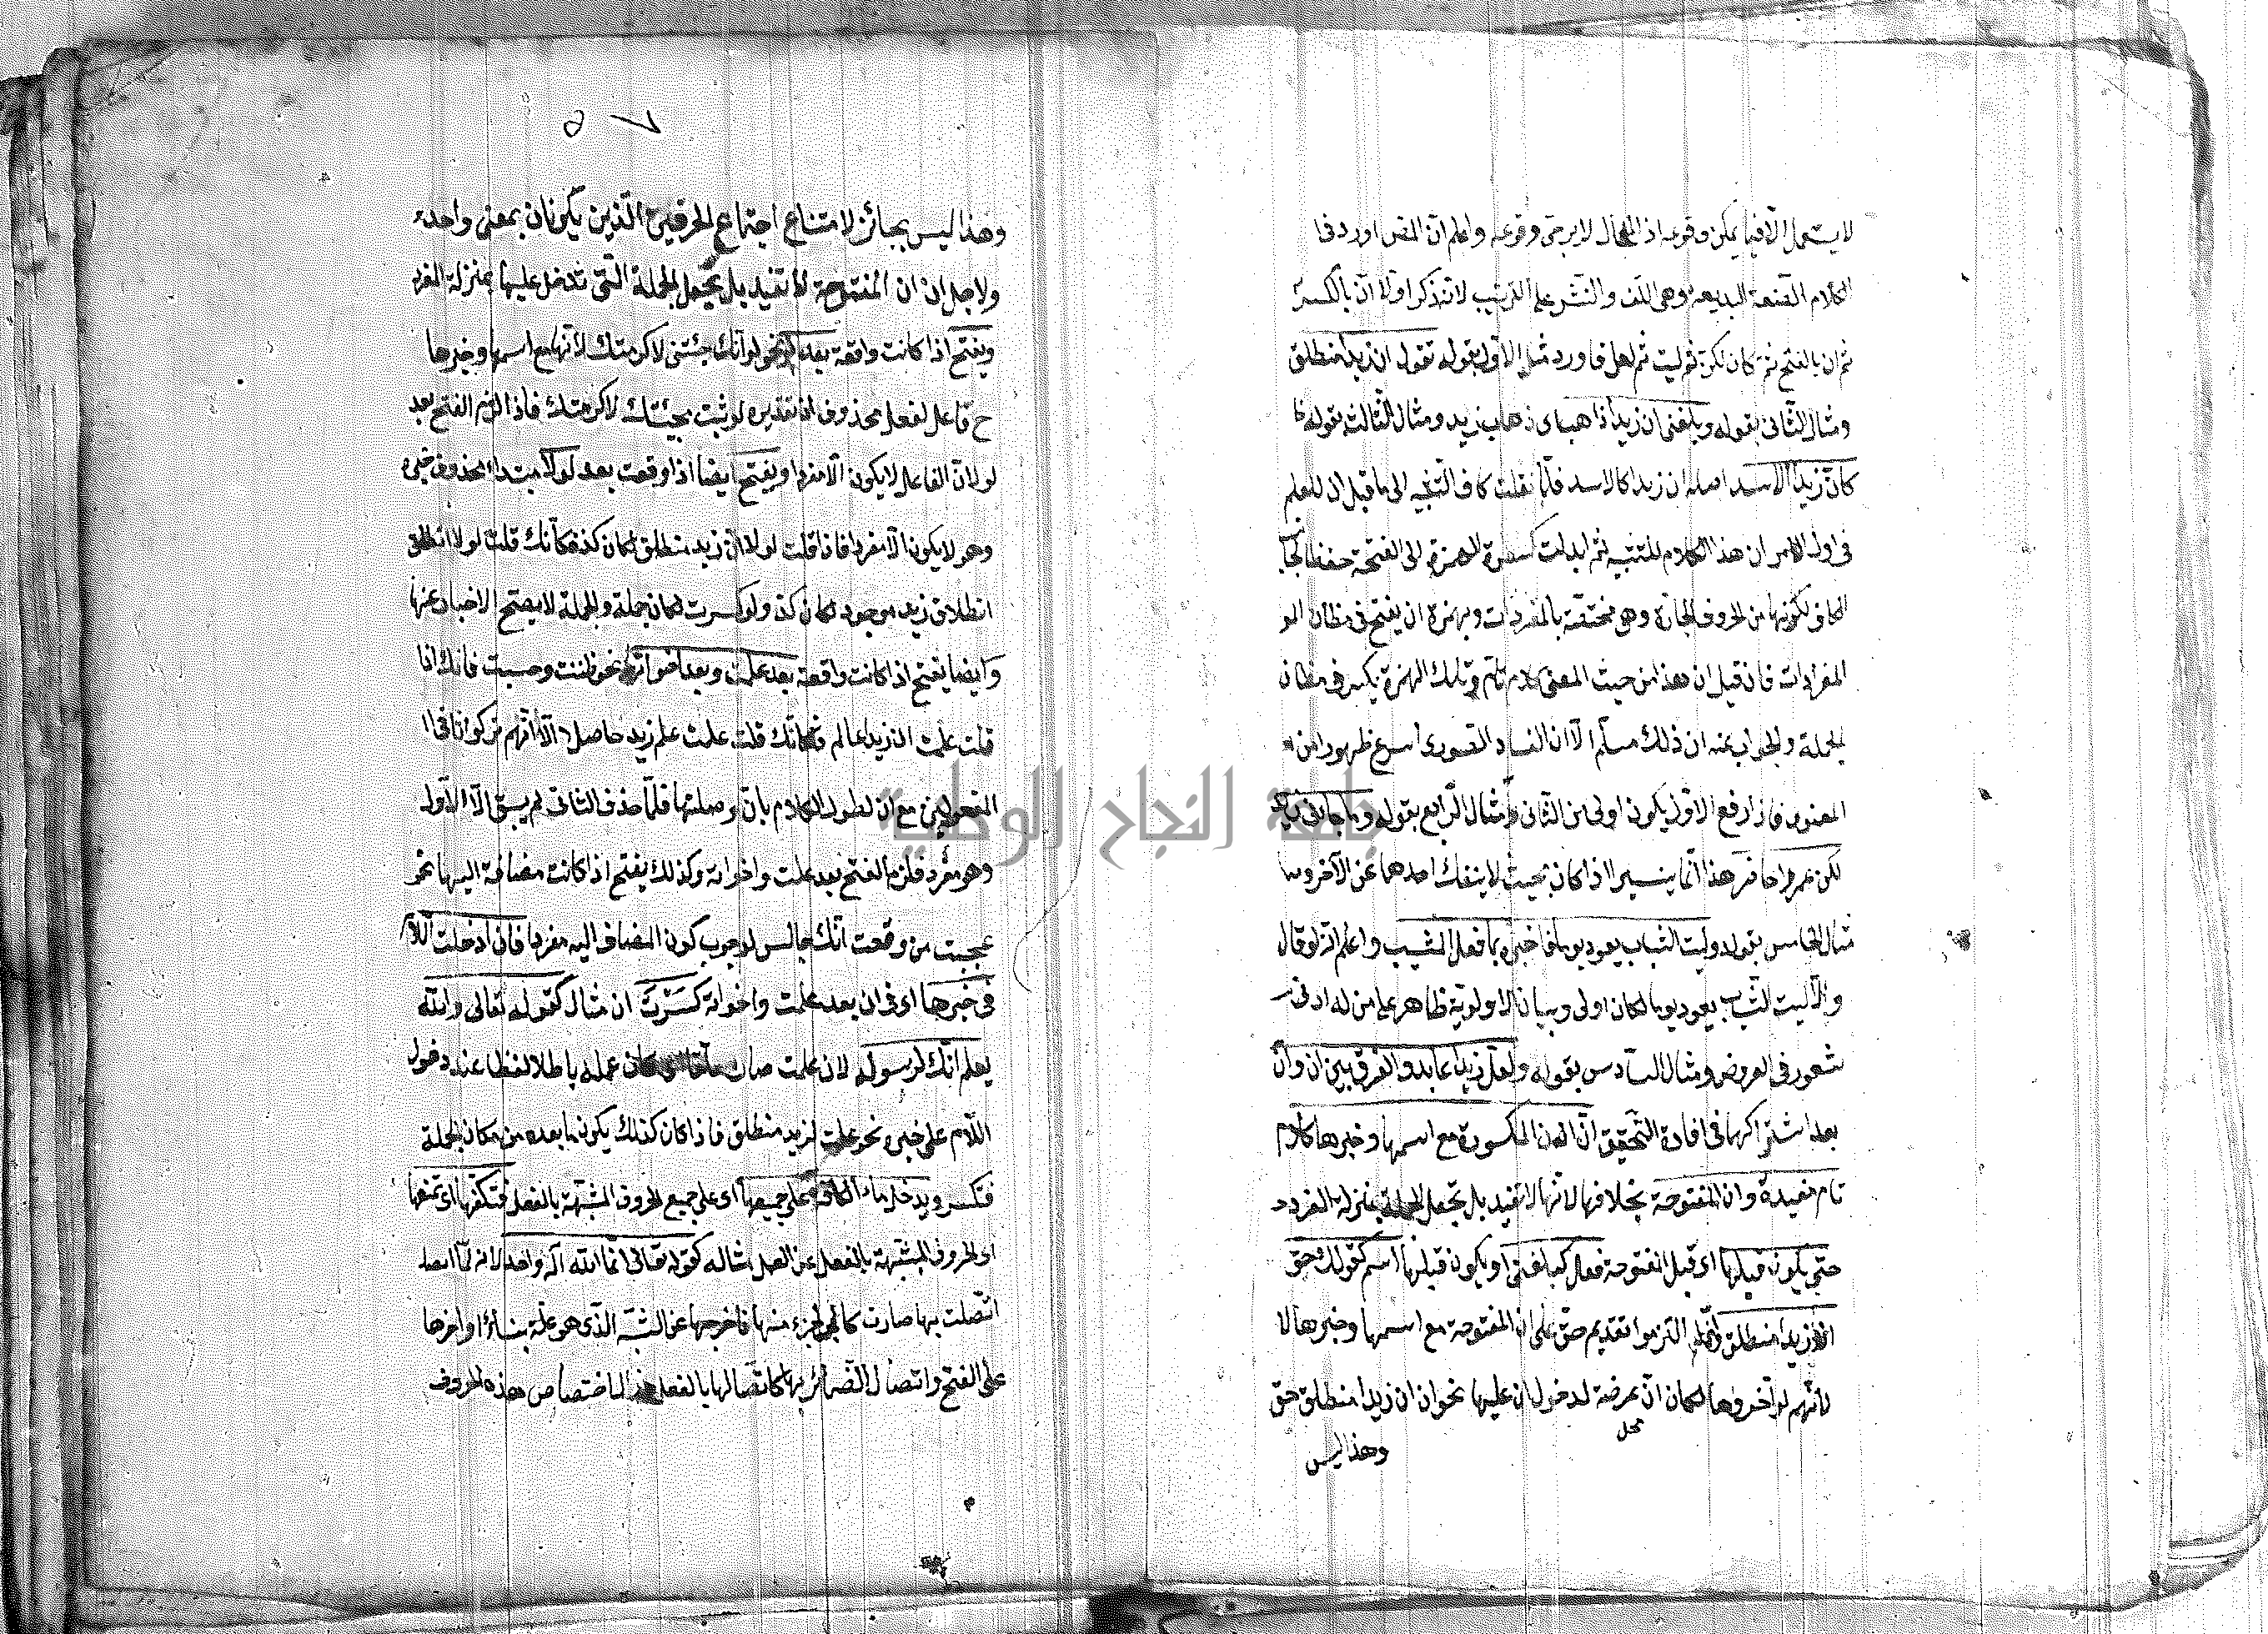 لا يستعمل الا فيما يمكن وقوعه اذ المحال لا يرجى وقوعه واعلم ان المص اورد في
الكلام الصنعة البديعة وهي اللف والنشر على الترتيب لانه ذكر اولا ان بالكسر
ثم ان بالفتح ثم كان ثم لكن ثم ليت ثم لعل فاورد مثال الاول بقوله تقول ان زيدا منطلق
ومثال الثاني بقوله وبلغني ان زيدا ذاهب اى ذهاب زيد ومثال الثالث بقوله
كان زيدا الاسد اصله ان زيدا كالاسد فلما نقلت كاف التشبيه الى ما قبل ان ليعلم
في اول الامر ان هذا الكلام للتشبيه ثم ابدلت كسرة الهمزة الى الفتحة حفظا لجانب
الكاف لكونها من الحروف الجارة وهي مختصة بالمفردات وبهمزة ان يفتح في مظان المو
المفردات فان قيل ان هذا من حيث المعنى كلام تام وتلك الهمزة يكسر في مظان
الجملة والجواب عنه ان ذلك مسلم الا ان الفساد الصورى اسرع ظهورا من
المعنوى فاذا رفع الاول يكون اولى من الثاني ومثال الرابع بقوله وما جائنى زيد
لكن عمرا حاضر هذا انما يتيسر اذا كان بحيث لا ينفك احدهما عن الآخر و
مثال الخامس بقوله وليت الشباب يعود يوما فاخبره بما فعل المشيب واعلم انه لو قال
والا ليت الشباب يعود يوما لكان اولى وبيان الاولوية ظاهر على من له ادنى
شعور في العروض ومثال السادس بقوله ولعل زيدا عابد والفرق بين ان وان
بعد اشتراكهما في افادة التحقيق ان ان المكسورة مع اسمها وخبرها كلام
تام مفيدة وان المفتوحة بخلافها لانها لا تفيد بل تجعل الجملة بمنزلة المفرد
حتى يكون قبلها اى قبل المفتوحة فعل كبلغنى او يكون قبلها اسم كقولك حق
ان زيدا منطلق وانما التزموا تقديم حق على ان المفتوحة مع اسمها وخبرها لا
لانهم لو اخروها لكان ان عرضة لدخول ان عليها نحو ان ان زيدا منطلق حق
محل
وهذا ليس
٥٧
وهذا ليس بجائز لامتناع اجتماع الحرفين الذين يكونان بمعنى واحد
ولاجل ان ان المفتوحة لا تفيد بل يجعل الجملة التى تدخل عليها بمنزلة المفرد
ويفتح اذا كانت واقعة بعد لو نحو لو انك جئتنى لاكرمتك لانها مع اسمها وخبرها
ح فاعل لفعل محذوف اى تقديره لو ثبت مجيئك لاكرمتك فاذا الزم الفتح بعد
لو لان الفاعل لا يكون الا مفردا ويفتح ايضا اذا وقعت بعد لولا مبتداء محذوف خبره
وهو لا يكون الا مفردا فاذا قلت لولا ان زيد منطلق لكان كذا فكانك قلت لولا انطلق
انطلاق زيد موجود لكان كذا ولو كسرت لكان جملة والجملة لا يصح الاخبار عنها
وايضا يفتح اذا كانت واقعة بعد علمت وبعد اخواتها نحو ظننت وحسبت فانك اذا
قلت علمت ان زيدا عالم فكانك قلت علمت علم زيد حاصلا الا انهم تركوا ثانى ا
المفعولين مع ان لطول الكلام بان وصلتها فلما حذف الثانى لم يبق الا الاول
وهو مفرد فلزم الفتح بعد علمت واخواته وكذلك يفتح اذا كانت مضافة اليها نحو
عجبت من وقعت انك جالس لوجوب كون المضاف اليه مفردا فان ادخلت اللام
في خبرها اى في ان بعد علمت واخواته كسرت ان مثال كقوله تعالى والله
يعلم انك لرسوله لان علمت صار عمله باطلا لفظا عند دخول
اللام على خبره نحو علمت لزيد منطلق فاذا كان كذلك يكون ما بعده من مكان الجملة
فتكسر ويدخل ماء الكافة على جميعها اى على جميع الحروف المشبهة بالفعل فتكفها اى تمنعها
اى الحروف المشبهة بالفعل عن العمل مثاله كقوله تعالى انما الله اله واحد لانه لما اتصل
اتصلت بها صارت كالجزء منها فاخرجها عن الشبه الذى هو علة بناء اواخرها
على الفتح واتصال الضمائر بها كاتصالها بالفعل اختصاص هذه الحروف